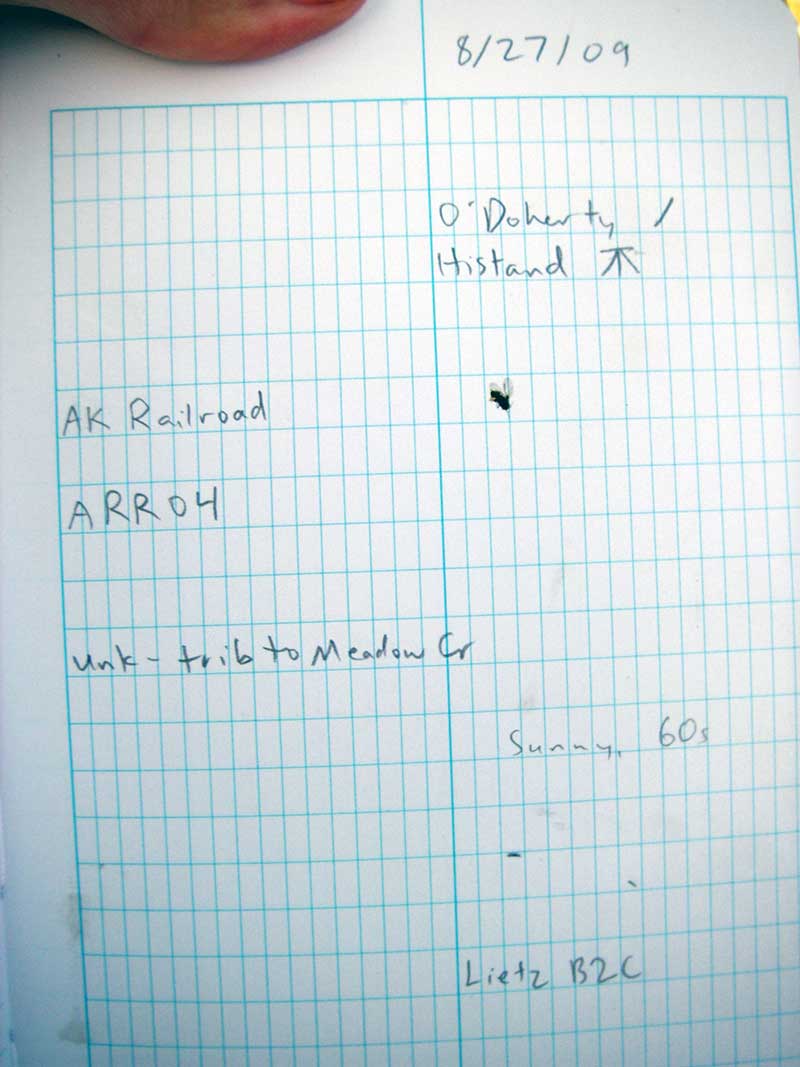 8/27/09
O'Doherty /
Histand ⊼
AK Railroad
ARR04
unk - trib to Meadow Cr
Sunny, 60s
Lietz B2C